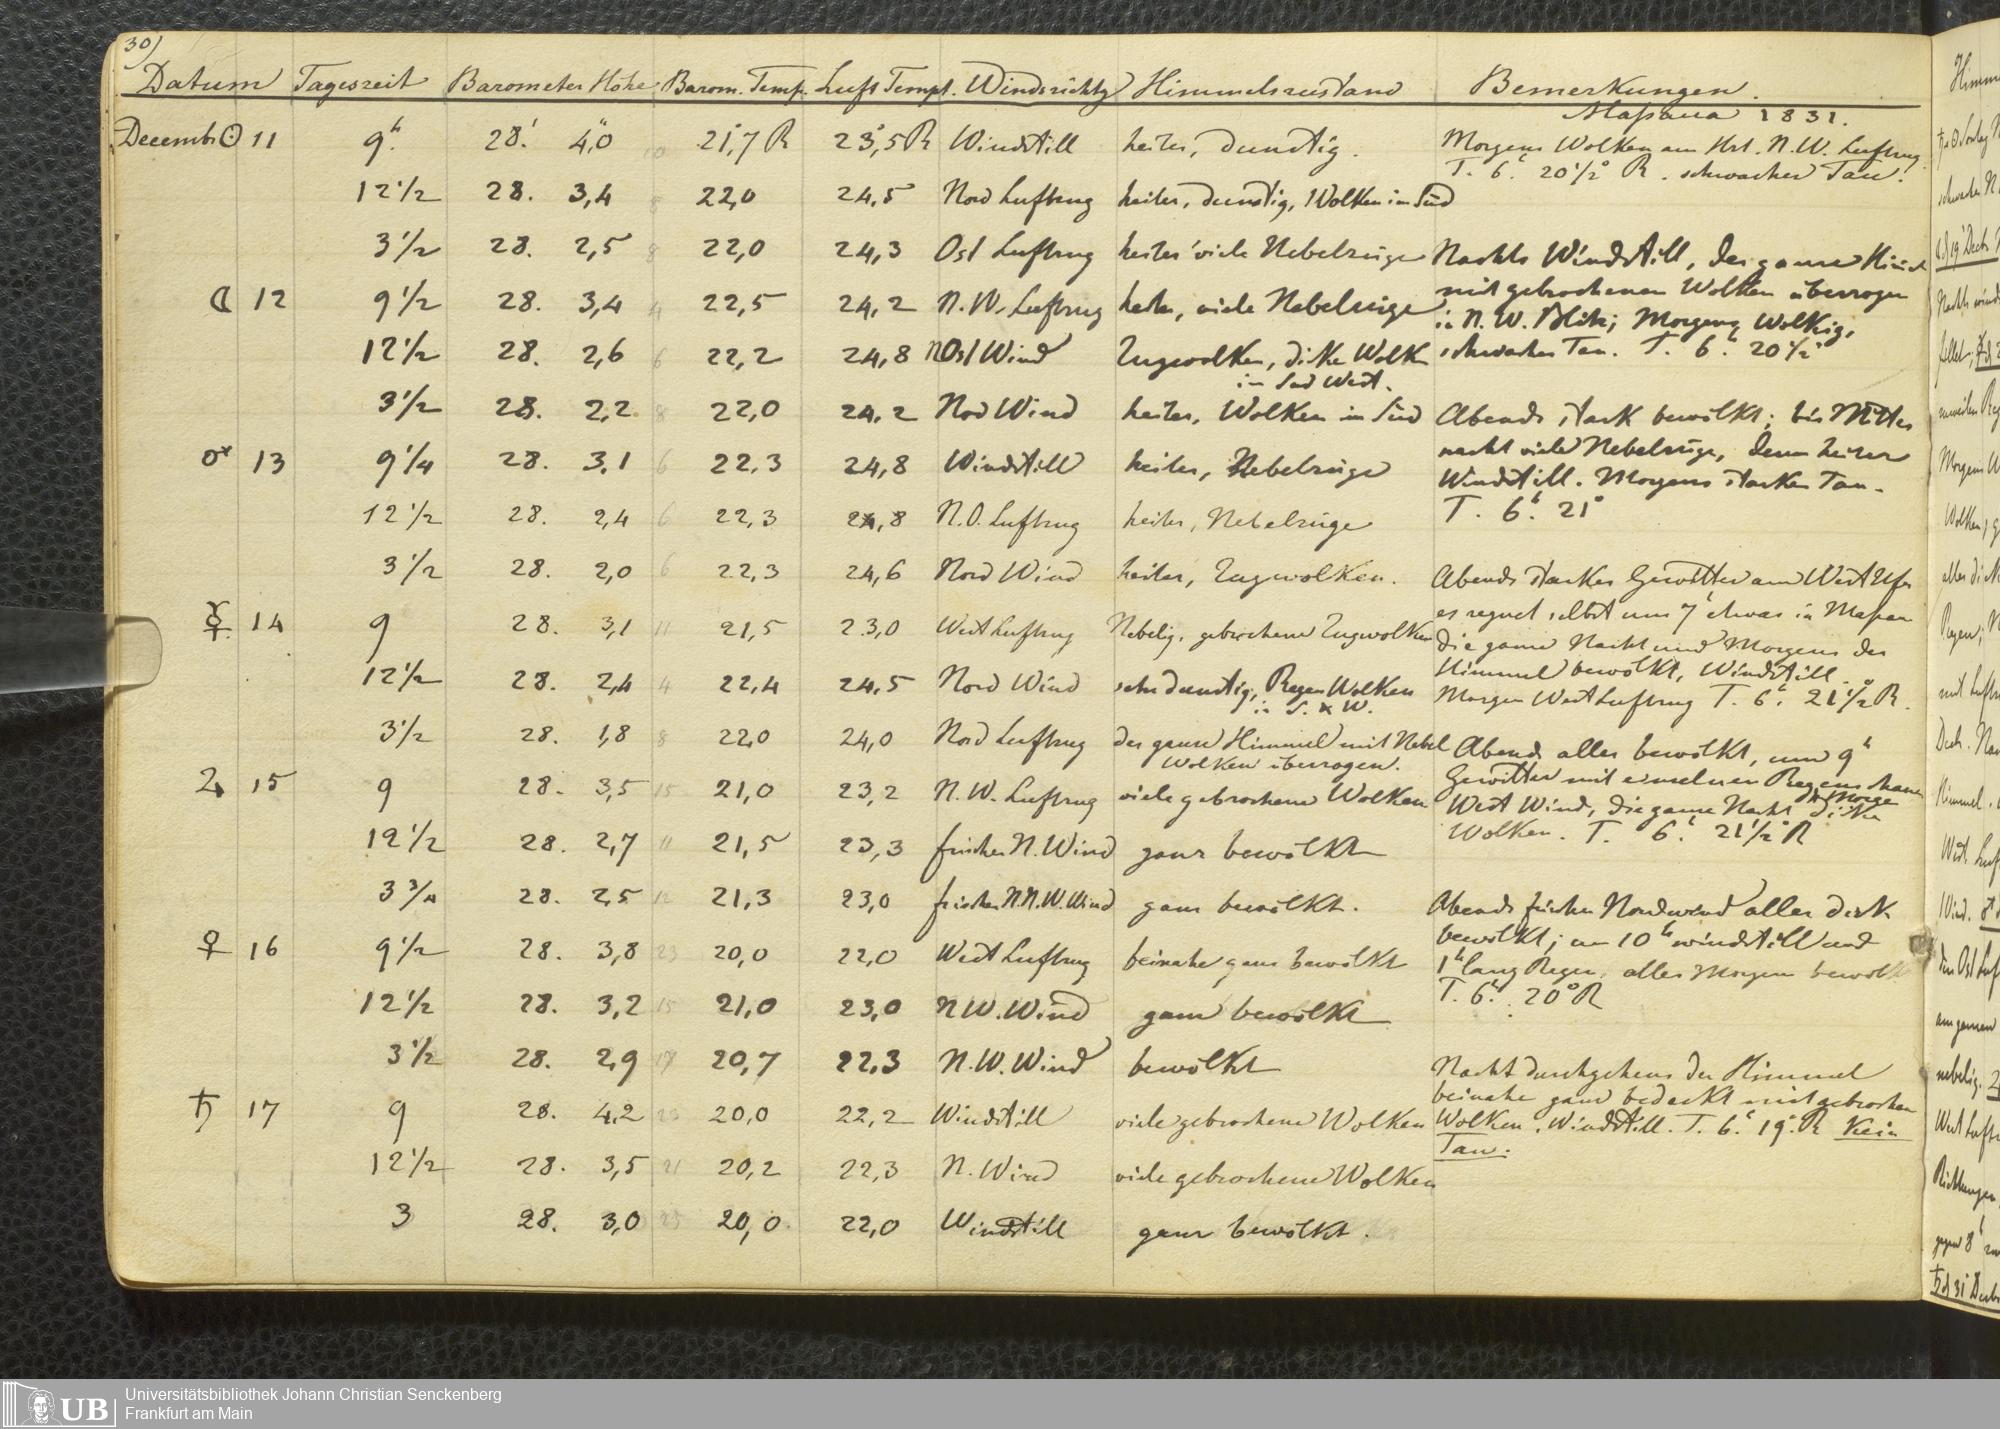 30)
Datum Tageszeit Barometer Höhe Barom. Temp. Luft Tempt. Windrichtg Himmelszustand Bemerkungen.
Massaua 1831.
Decemb. ☉ 11 9h. 28.' 4,"0 10 21,°7 R 23,°5 R Windstill heiter, dunstig. Morgens Wolken am Hrt. N.W. Luftzug
T. 6h. 20 1/2° R. schwacher Tau.
12 1/2 28. 3,4 8 22,0 24,5 Nord Luftzug heiter, dunstig, Wolken im Süd
3 1/2 28. 2,5 8 22,0 24,3 Ost Luftzug heiter viele Nebelzüge Nachts Windstill, der ganze Himel
☾ 12 9 1/2 28. 3,4 4 22,5 24,2 N.W. Luftzug heiter, viele Nebelzüge mit gebrochenen Wolken überzogen
in N.W. Blitz; Morgens Wolkig,
12 1/2 28. 2,6 6 22,2 24,8 NOst Wind Zugwolken, dicke Wolk schwacher Tau. T. 6h. 20 1/2°
in Süd West.
3 1/2 28. 2,2 8 22,0 24,2 Nord Wind heiter, Wolken im Süd Abends stark bewölkt; bis Mitter
♂ 13 9 1/4 28. 3,1 6 22,3 24,8 Windstill heiter, Nebelzüge nacht viele Nebelzüge, denn heiter
Windstill. Morgens starken Tau.
12 1/2 28. 2,4 6 22,3 24,8 N.O. Luftzug heiter, Nebelzüge T. 6h. 21°
3 1/2 28. 2,0 6 22,3 24,6 Nord Wind heiter, Zugwolken. Abends starkes Gewitter am West Ufer
☿ 14 9 28. 3,1 11 21,5 23,0 West Luftzug Nebelig, gebrochene Zugwolken es regnet selbst um 7h etwas in Massau
die ganze Nacht und Morgens der
12 1/2 28. 2,4 4 22,4 24,5 Nord Wind sehr dunstig, Regen Wolken Himmel bewölkt, Windstill
in S. & W. Morgen West Luftzug T. 6h. 21 1/2° R.
3 1/2 28. 1,8 8 22,0 24,0 Nord Luftzug der ganze Himmel mit Nebel Abends alles bewölkt, um 9h
Wolken überzogen.
♃ 15 9 28. 3,5 15 21,0 23,2 N.W. Luftzug viele gebrochene Wolken Gewitter mit einzelnen Regenschauer
West Wind, die ganze Nacht & Morge dicke
12 1/2 28. 2,7 11 21,5 23,3 frischer N. Wind ganz bewölkt Wolken. T. 6h. 21 1/2° R
3 3/4 28. 2,5 12 21,3 23,0 frischer N.N.W. Wind ganz bewölkt. Abends frischer Nordwind alles dick
♀ 16 9 1/2 28. 3,8 23 20,0 22,0 West Luftzug beinahe ganz bewölkt bewölkt; um 10h windstill und
1h lang Regen, alles Morgen bewölk
12 1/2 28. 3,2 15 21,0 23,0 N W. Wind ganz bewölkt T. 6h. 20° R
3 1/2 28. 2,9 17 20,7 22,3 N.W. Wind bewölkt Nacht durchgehens der Himmel
beinahe ganz bedeckt mit gebrochen
♄ 17 9 28. 4,2 23 20,0 22,2 Windstill viele gebrochene Wolken Wolken, Windstill. T. 6h. 19°. R Kein
Tau.
12 1/2 28. 3,5 21 20,2 22,3 N. Wind viele gebrochene Wolken
3 28. 3,0 23 20,0 22,0 Windstill ganz bewölkt.
UB
Universitätsbibliothek Johann Christian Senckenberg
Frankfurt am Main